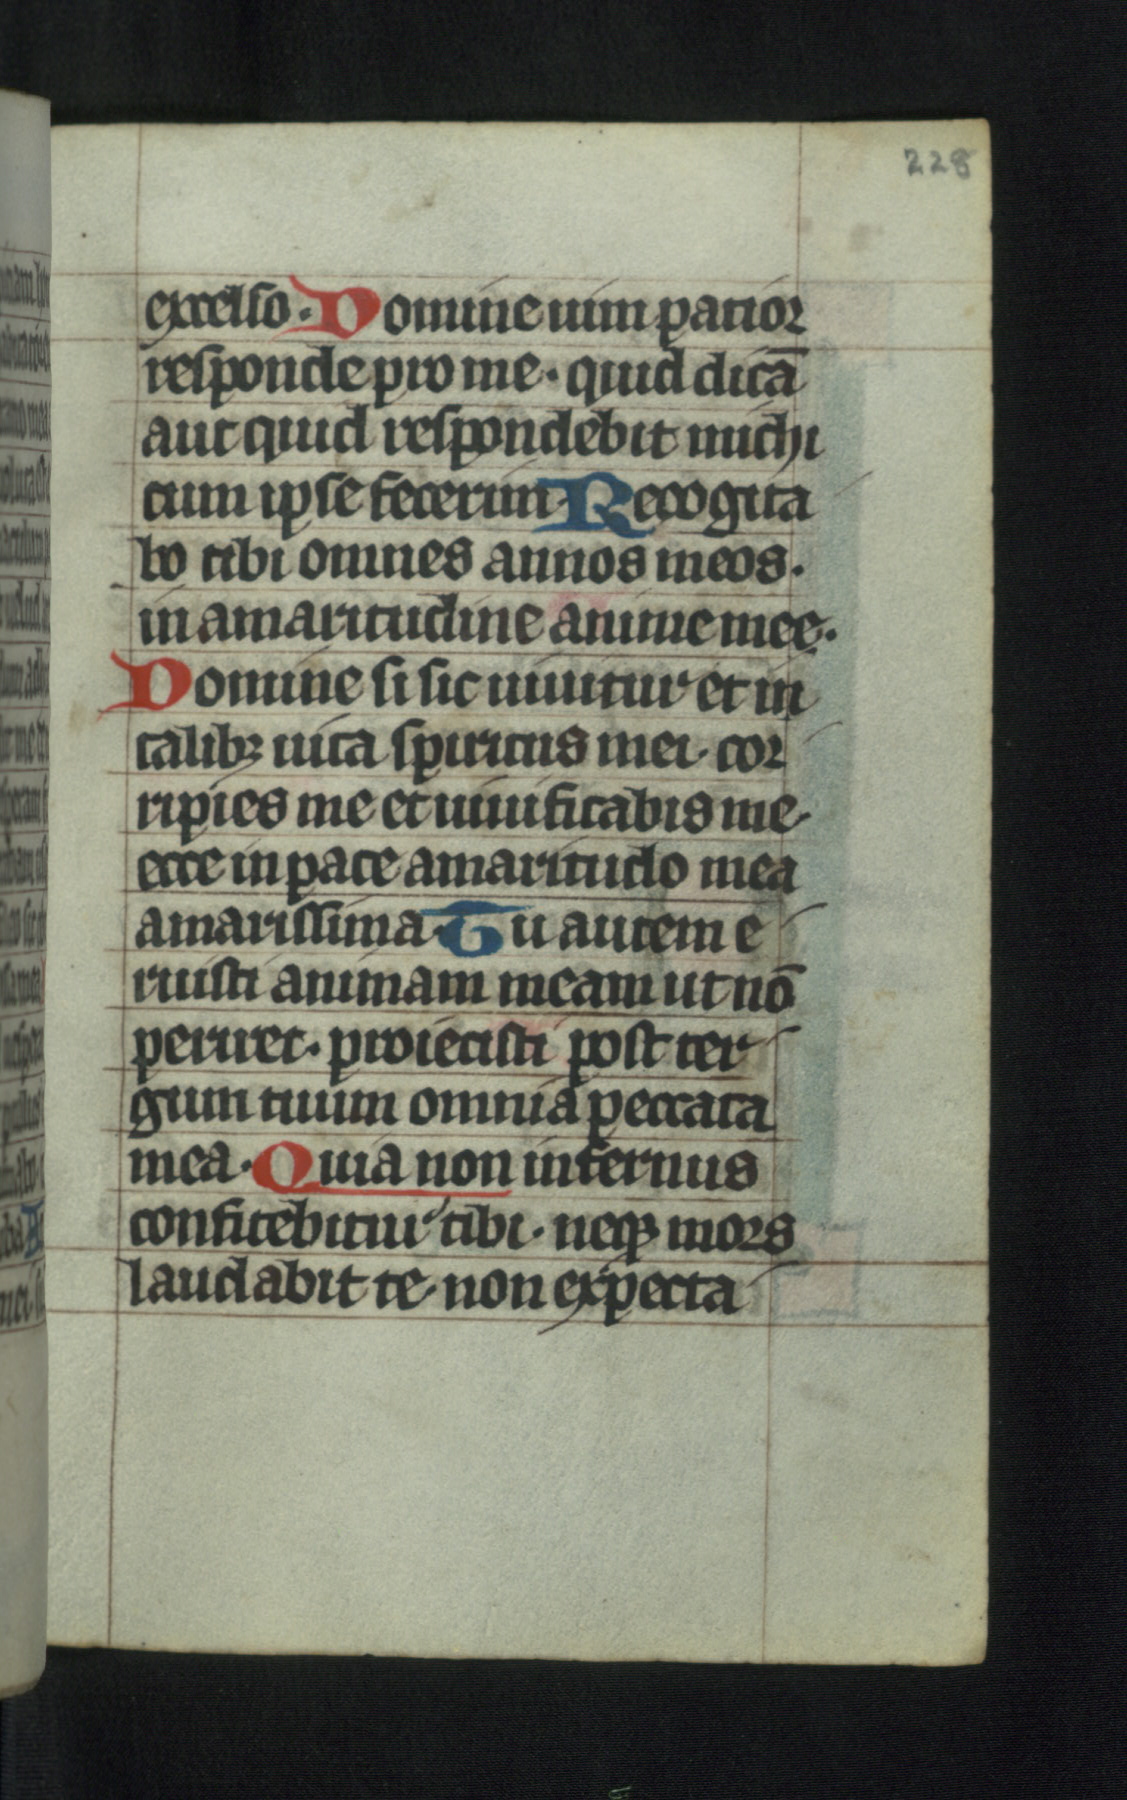 228
excelso. Domine uim patior
responde pro me. quid dicā
aut quid respondebit michi
cum ipse fecerim. Recogita
bo tibi omnes annos meos.
in amaritudine anime mee.
Domine si sic uiuitur et in
talibꝫ uita spiritus mei. cor
ripies me et uiuificabis me.
ecce in pace amaritudo mea
amarissima. Tu autem e
ruisti animam meam ut nō
periret. proiecisti post ter
gum tuum omnia peccata
mea. Quia non infernus
confitebitur tibi. neqꝫ mors
laudabit te. non expecta